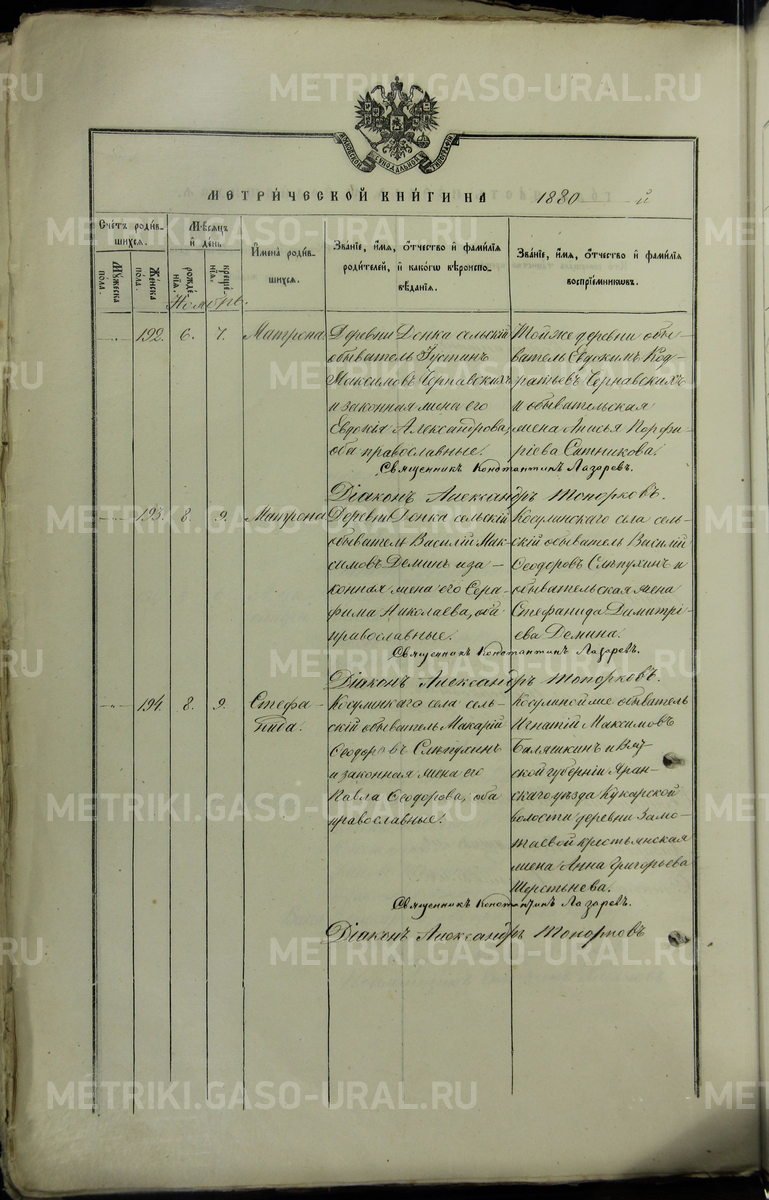 МЕТРИЧЕСКОЙ КНИГИ НА 1880 -й
Счетъ родившихся.
Мужеска пола.
Женска пола.
Мѣсяцъ и день.
рожденія.
крещенія.
Имена родившихся.
Званіе, имя, отчество и фамилія родителей, и какого вѣроисповѣданія.
Званіе, имя, отчество и фамилія воспріемниковъ.
Ноябрь.
192. 6. 7. Матрона
сельскій
обыватель Іустинъ
Максимовъ Чернавскихъ
и законная жена его
Евдокія Александрова,
оба православные.
Той же деревни обы-
ватель Евдокимъ Код-
ратьевъ Чернавскихъ
и обывательская
жена Анисья Порфи-
ріева Ситникова.
Священникъ Константинъ Лазаревъ.
Діаконъ Александръ Топорковъ.
193. 8. 9. Матрона
сельскій
обыватель Василій Мак-
симовъ Деминъ и за-
конная жена его Сера-
фима Николаева, оба
православные.
Косулинскаго села сель-
скій обыватель Василій
Ѳеодоровъ Слѣпухинъ и
обывательская жена
Стефанида Димитрі-
ева Демина.
Священникъ Константинъ Лазаревъ.
Діаконъ Александръ Топорковъ.
194. 8. 9. Стефа-
нида.
Косулинскаго села сель-
скій обыватель Макарій
Ѳеодоровъ Слѣпухинъ
и законная жена его
Павла Ѳеодорова, оба
православные.
обыватель
Игнатій Максимовъ
Баляшкинъ и Вят-
ской губерніи Яран-
скаго уѣзда Кукарской
волости деревни Замо-
таевой крестьянская
жена Анна Григорьева
Шерстьнева.
Священникъ Константинъ Лазаревъ.
Діаконъ Александръ Топорковъ
METRIKI.GASO-URAL.RU